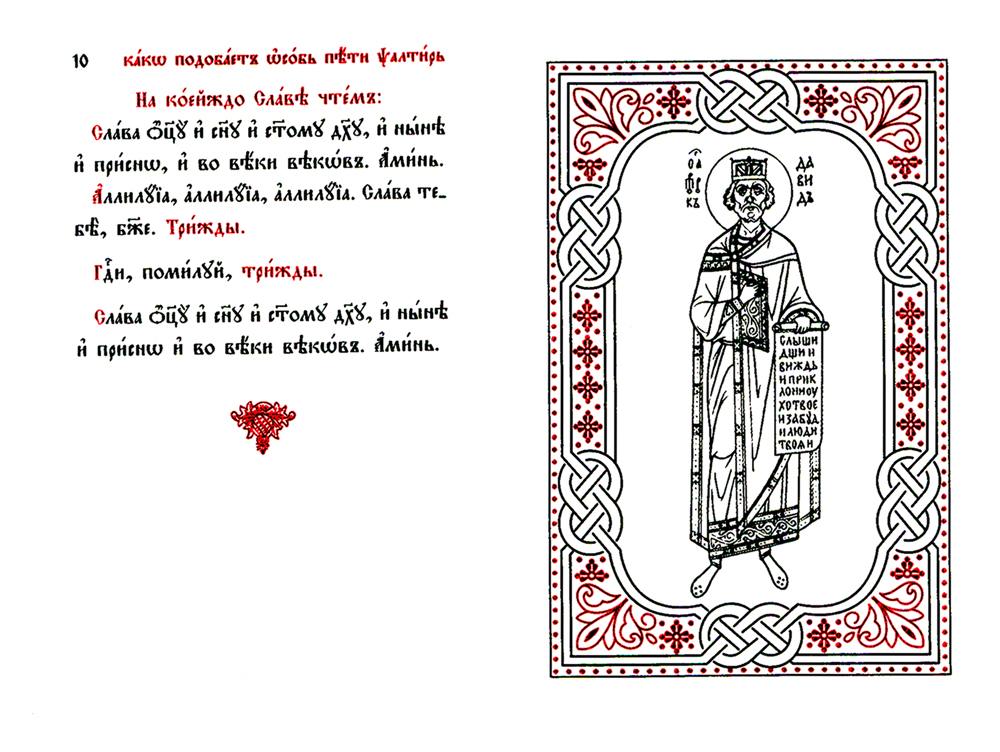 10 ка́кѡ подоба́етъ ѡ҆со́бь пѣ́ти ѱалти́рь
На ко́ейждо Сла́вѣ чте́мъ:
Сла́ва ѻ҆ц҃ꙋ̀ и҆ сн҃ꙋ и҆ ст҃о́мꙋ дх҃ꙋ, и҆ ны́нѣ
и҆ при́снѡ, и҆ во вѣ́ки вѣкѡ́въ. А҆ми́нь.
А҆ллилꙋ́їа, а҆ллилꙋ́їа, а҆ллилꙋ́їа. Сла́ва те-
бѣ̀, бж҃е. Три́жды.
Гд҇и, поми́лꙋй, три́жды.
Сла́ва ѻ҆ц҃ꙋ̀ и҆ сн҃ꙋ и҆ ст҃о́мꙋ дх҃ꙋ, и҆ ны́нѣ
и҆ при́снѡ и҆ во вѣ́ки вѣкѡ́въ. А҆ми́нь.
ДА
ВИ
ДЪ
СЛЫШИ
ДЩИ И
ВИЖДЬ
И ПРИК
ЛОНИ ОУ
ХО ТВОЕ
И ЗАБУД
И ЛЮДИ
ТВОѦ И